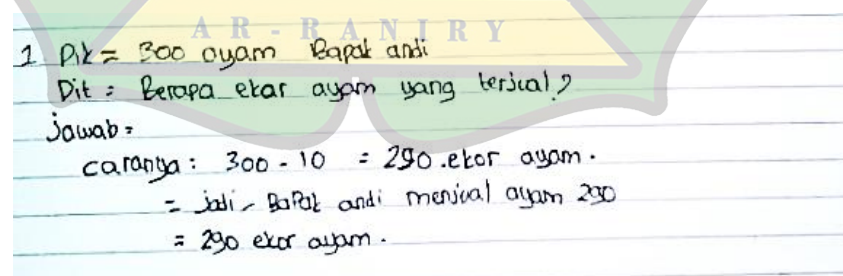 AR-RANIRY
1 Dik = 300 ayam Bapak andi
Dit = Berapa ekar ayam yang terjual?
jawab =
caranya : 300 - 10 = 290 .ekor ayam.
= jadi - Bapak andi menjual ayam 290
= 290 ekor ayam.